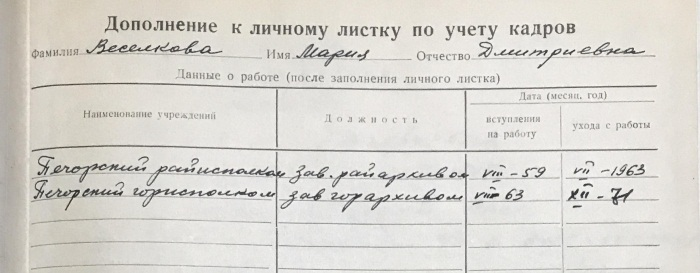 Дополнение к личному листку по учету кадров
Фамилия Веселкова Имя Мария Отчество Дмитриевна
Данные о работе (после заполнения личного листка)
Наименование учреждений Должность Дата (месяц, год)
вступления на работу ухода с работы
Печорский райисполком Зав. райархивом VIII - 59 VII - 1963
Печорский горисполком Зав горархивом VIII 63 XII - 71